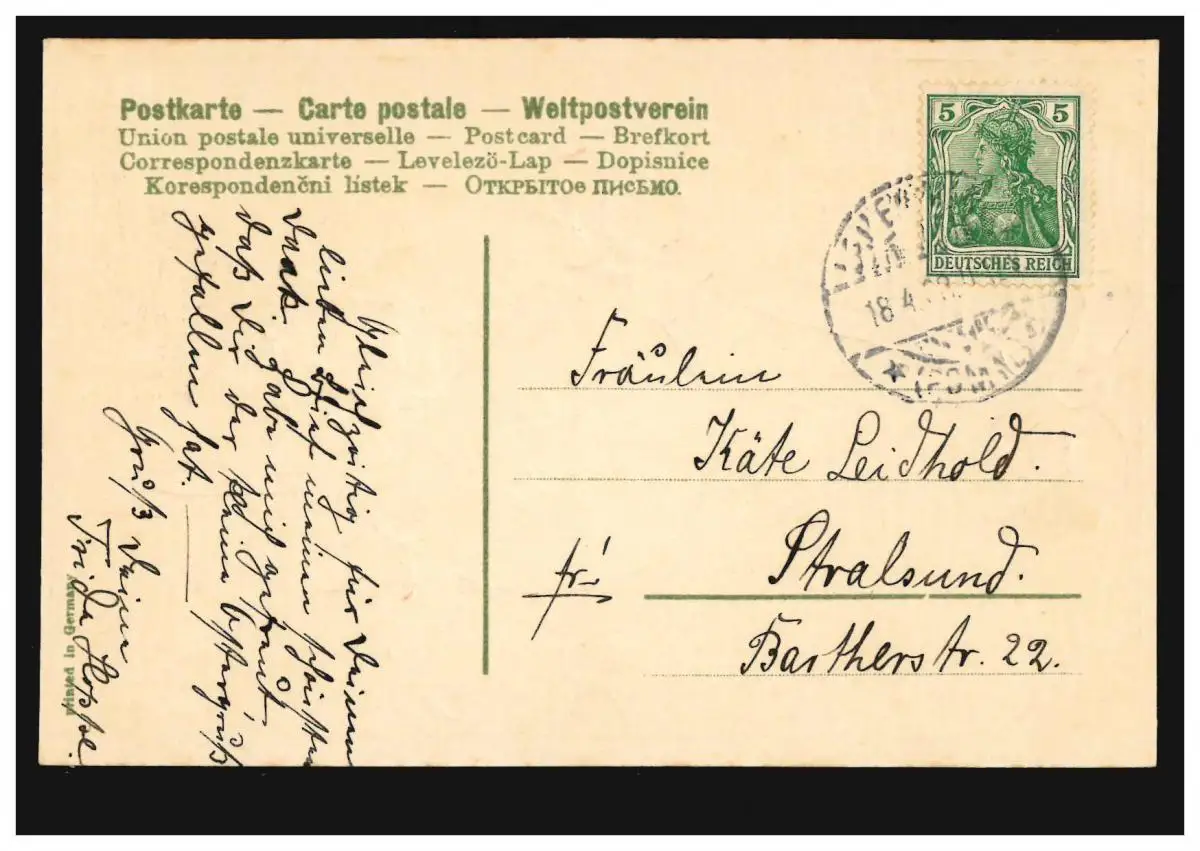 Postkarte — Carte postale — Weltpostverein
Union postale universelle — Postcard — Brefkort
Correspondenzkarte — Levelező-Lap — Dopisnice
Korespondenční lístek — Открытое письмо.
5 5
DEUTSCHES REICH
18.4.
(POM
Fräulein
Käte Leidhold.
fr.
Stralsund.
Bartherstr. 22.
Gleichzeitig für Deinen
lieben Brief meinen schönsten
Dank. Habe mich gefreut,
daß Dir der kleine Ostergruß
gefallen hat.
Gruß Deine
Frida Hoppe.
Printed in Germany